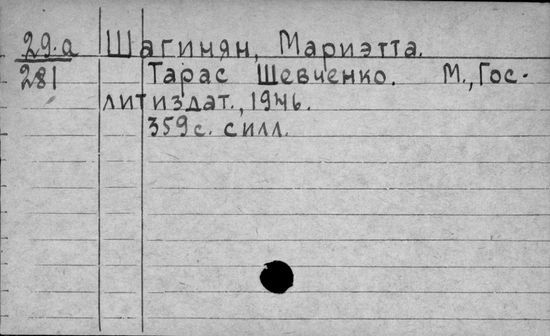 29.а Шагинян, Мариэтта.
281 Тарас Шевченко. М., Гос-
литиздат., 1946.
359 с. с илл.